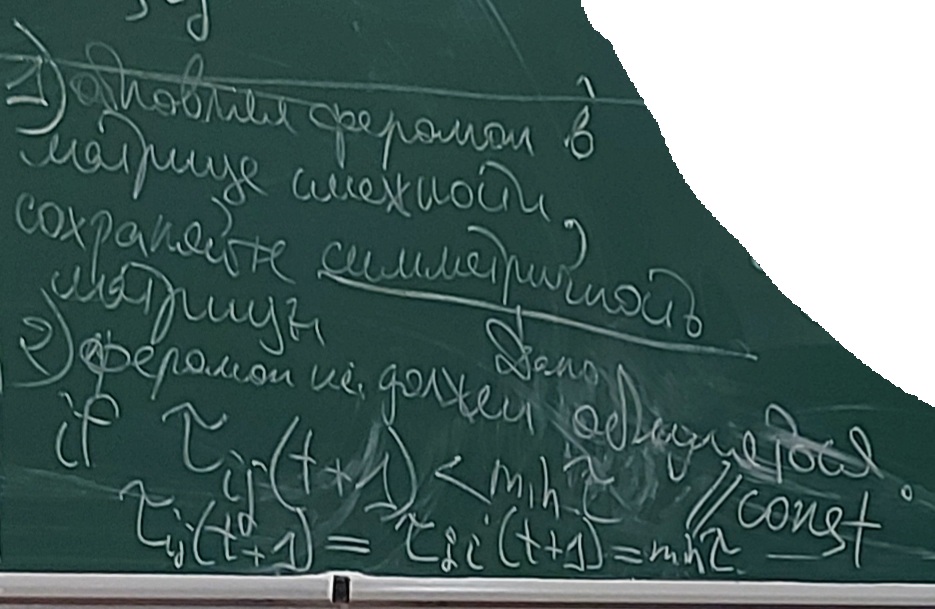 1) обновляя феромон в
матрице смежности,
сохраняйте симметричность
матрицы
2) феромон не должен обнуляться
if τij(t+1) < min τ // const
τij(t+1) = τji(t+1) = min τ